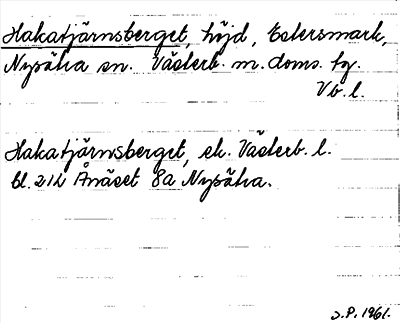 Hakatjärnsberget, höjd, Estersmark,
Nysätra sn. Västerb. m. doms. fg.
Vb. l.
Hakatjärnsberget, ek. Västerb. l.
bl. 21L Ånäset 8a Nysätra.
S.P. 1961.